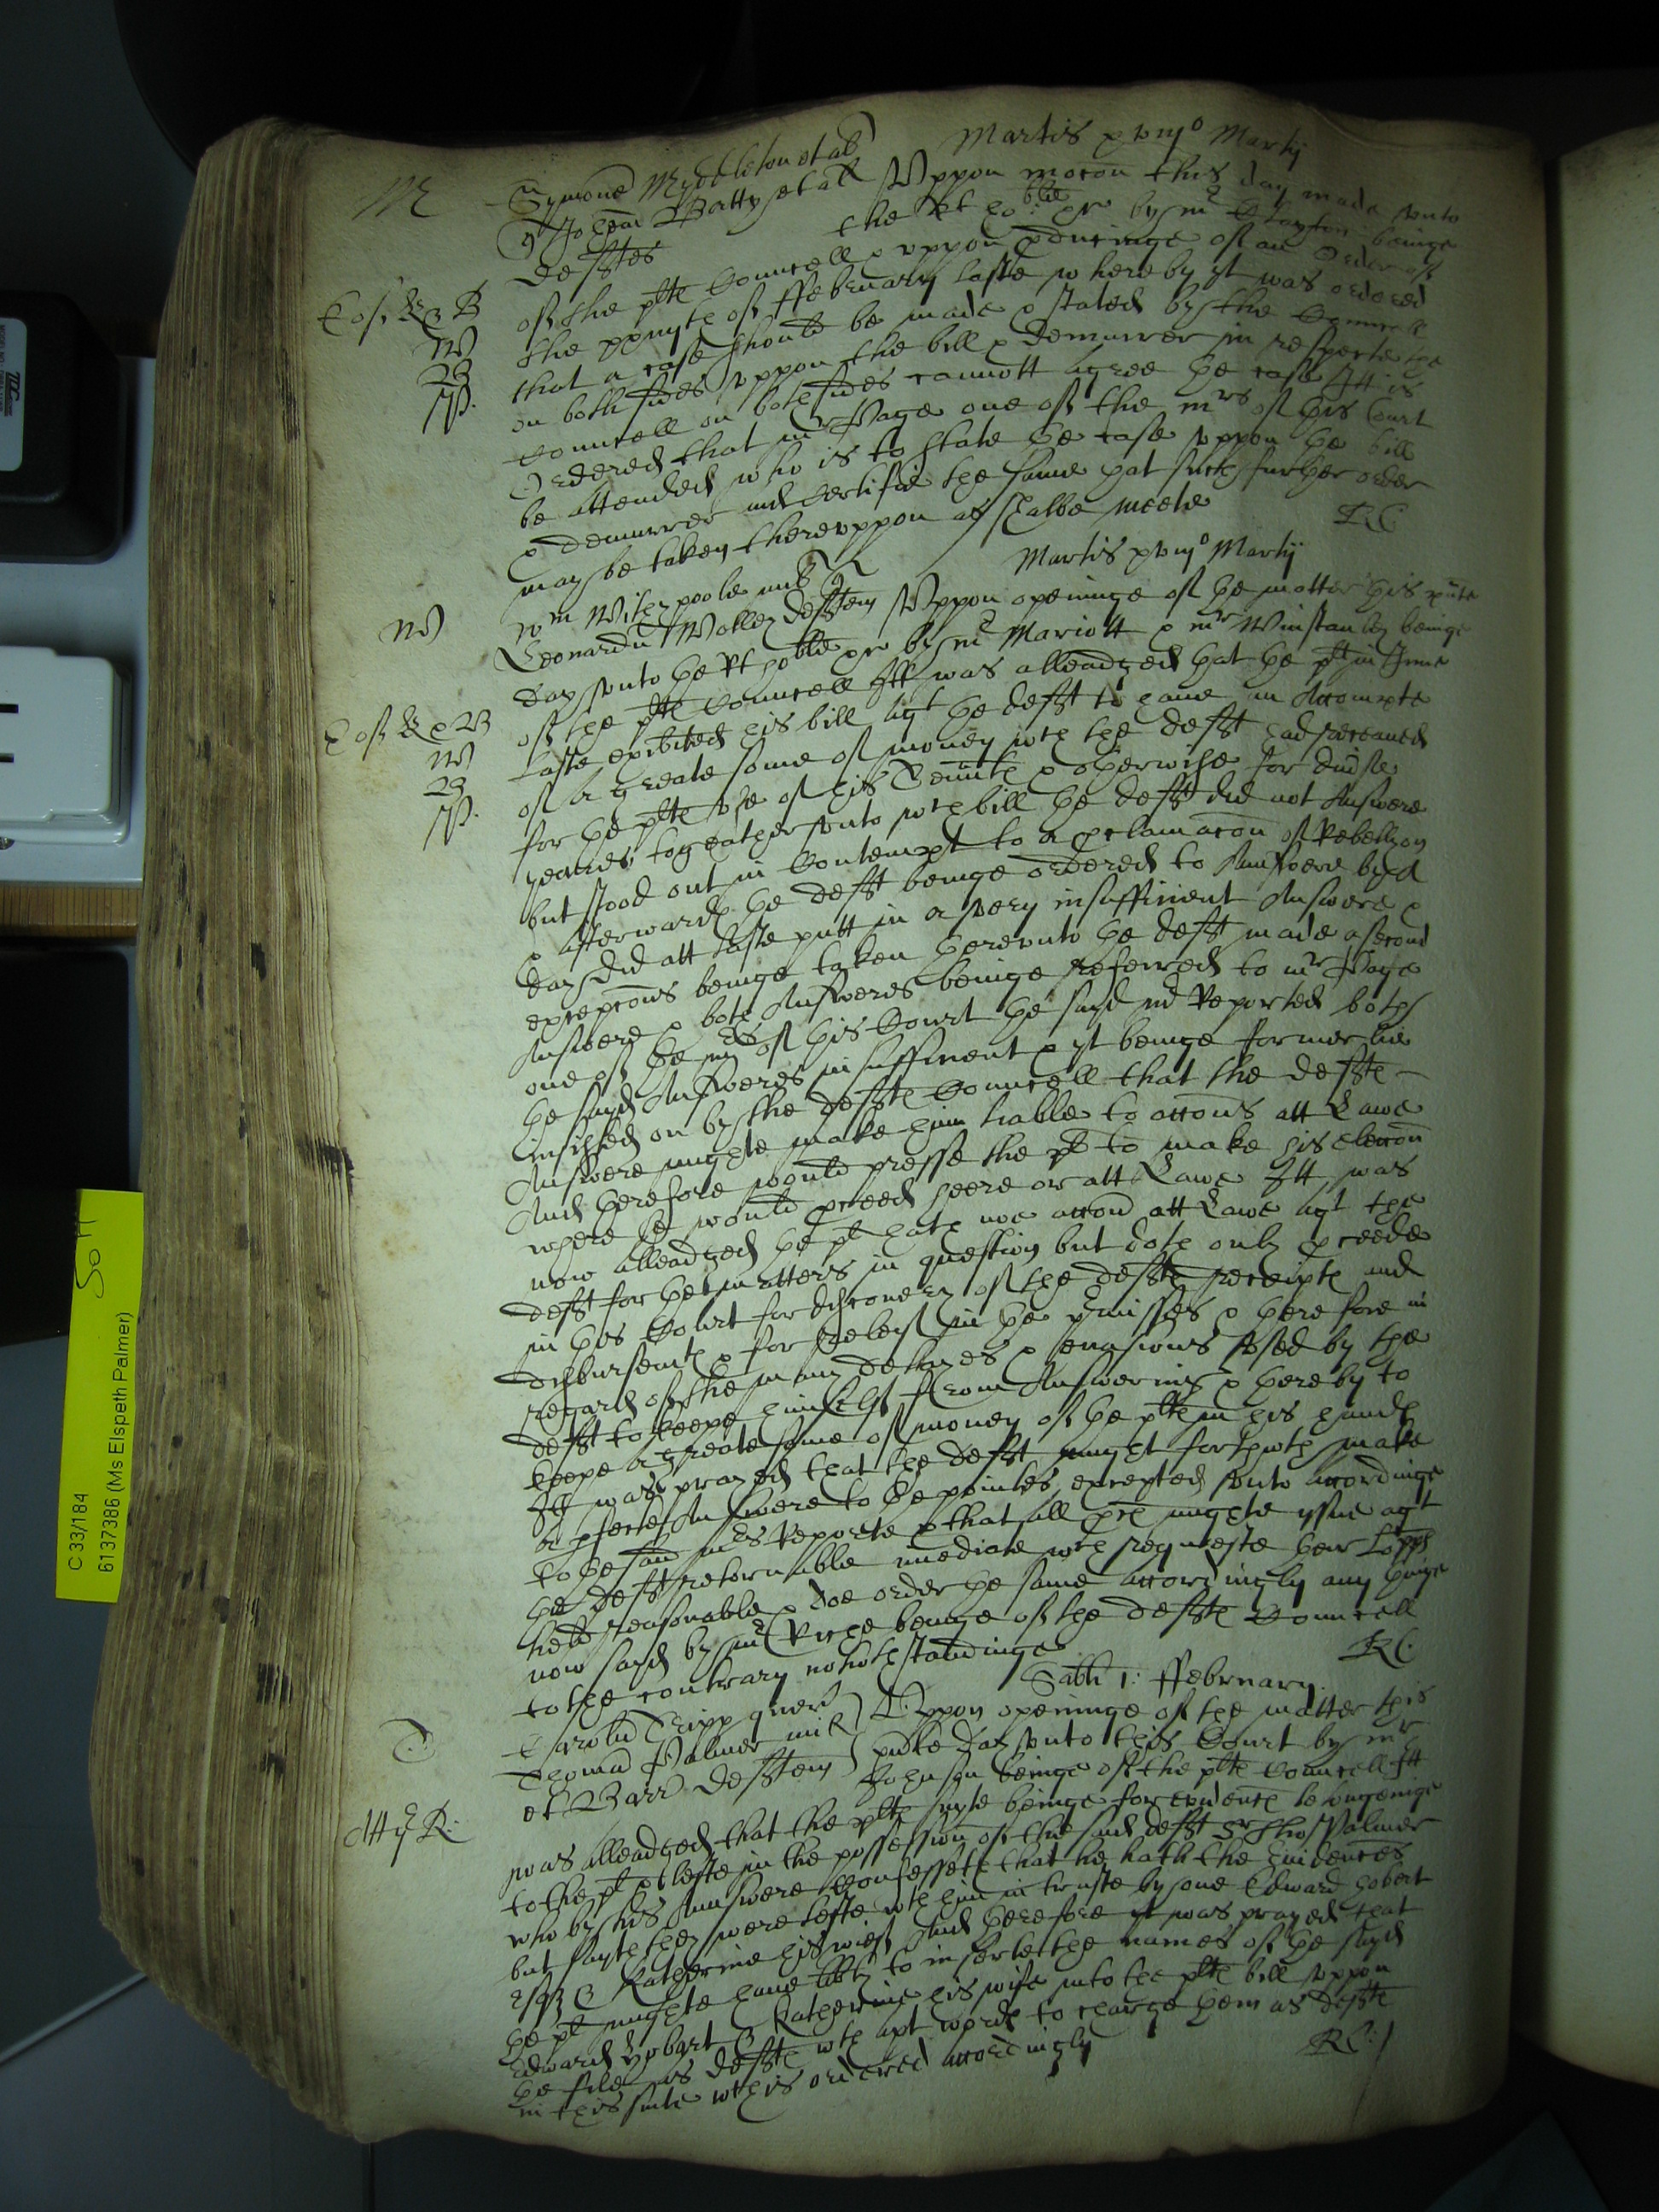 Martis xviijo Martij
M
Symone Myddleton et al
qr Johem Battys et all
Uppon mocon this day made unto
defftes
the Rt hoble: etc by mr Clayton beinge
Cosd & B
of the plte Councell & uppon producinge of an Order of
W
the xxviijth of ffebruary laste whereby yt was ordered
23
that a case should be made & stated by the Councell
W.
on both sides uppon the bill & demurrer in respecte the
Councell on bothe sides cannott agree the case Itt is
Ordered that mr Page one of the mrs of this Court
be attended who is to state the case uppon the bill
& demurrer and Certifie the same that such further order
may be taken thereuppon as shalbe meete
RC
Martis xviijo Martij
W
Wm Withypoole mil qr
Leonardu Wolley defften
Uppon openinge of the matter this pnte
day unto the Rt hoble etc by mr Mariott & mr Winstanley beinge
of the plte Councell Itt was alleadged that the plt in June
Cosd & B
laste exibited his bill agt the defft to have an Accompte
W
of a greate some of money wch the defft had receaved
23
for the plte use of his Rents & otherwise for divse
W.
yeares togeather unto wch bill the defft did not Answere
but stood out in Contempt to a proclamacon of Rebellyon
& afterwards the defft beinge ordered to Aunswere by a
day did att laste putt in a very insufficient Answere &
excepcons beinge taken thereunto the defft made a second
Answere & both Answeres beinge referred to mr Page
one of the mrs of this Court the sayd mr Reported both
the sayd Answeres insufficient & yt beinge formerlie
insisted on by the deffte Councell that the deffte
Answere mighte make him liable to accons att Lawe
And therefore would presse the plt to make his eleccon
where he would proceed heere or att Lawe Itt was
now alleadged the plt hath noe accon att Lawe agt the
defft for the matters in question but doth only proceede
in this Court for discovery of the deffte receipts and
disbursemts & for releif in the premisses & therefore in
regard of the many delayes & evasions used by the
defft to keepe himself from Answeringe & thereby to
keepe a greate some of money of the plte in his hands
Itt was prayed that the defft might forthwth make
a pfecte Answere to the pointes excepted unto accordinge
to the said mrs Reporte & that all pces mighte yssue agt
the defft retornable imediate wch requeste their Lopps
held reasonable & doe order the same accordingly any thinge
now sayd by mr Riche beinge of the deffte Councell
to the contrary notwthstandinge
RC.
Sabti 1: ffebruary
T
Carolu Tripp quer
Thoma Palmer mil
et Barr defften
Uppon openinge of the matter this
pnte day unto this Court by mr
Johnson beinge of the plte Councell Itt
was alleadged that the plte suyte beinge for evidence belongeinge
to the plt & lefte in the possession of the said defft Sr Tho: Palmer
who by his Aunswere Confesseth that he hath the Evidences
but sayth they were lefte wth him in truste by one Edward Hobert
esqr & Katherine his wief And therefore yt was prayed that
the plt mighte have libty to inserte the names of the sayd
Edward Hobart & Katherine his wife into the plte bill uppon
the file as deffte wth apt words to charge them as deffte
in this suite wch is ordered accordingly
RC:
C 33/184
6137386 (Ms Elspeth Palmer)